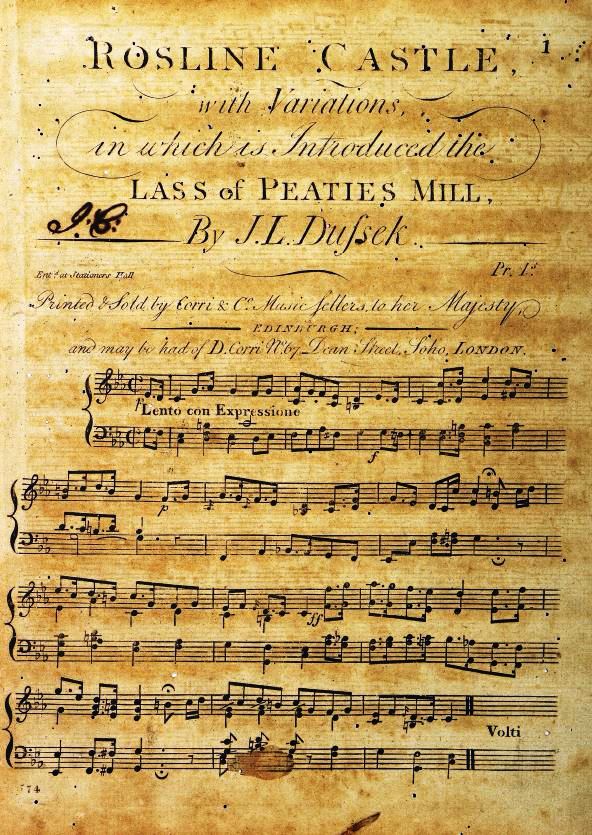 1
ROSLINE CASTLE,
with Variations,
in which is Introduced the
LASS of PEATIES MILL,
J.C.
By J. L. Duſsek.
Pr. 1.s
Ent.d at Stationers Hall
Printed & Sold by Corri & Co. Music ſellers, to her Majesty,
EDINBURGH;
and may be had of D. Corri No. 67 Dean Street, Soho, LONDON.
Lento con Expressione
f
f
p
ff
Volti
74